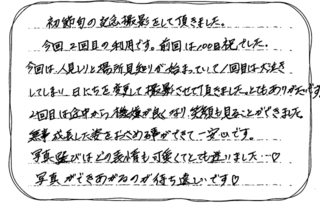 初節句の記念撮影をして頂きました。
今回、2回目の利用です。前回は100日祝でした。
今回は人見しりと場所見知りが始まっていて1回目は大泣き
してしまい日にちを変更して撮影させて頂きました。とてもありがたいです。
2回目は途中から機嫌が良くなり笑顔も見ることができました。
無事成長した姿をおさめる事ができて一安心です。
写真選びはどの表情も可愛くてとても迷いました…♡
写真ができあがるのが待ち遠しいです♡